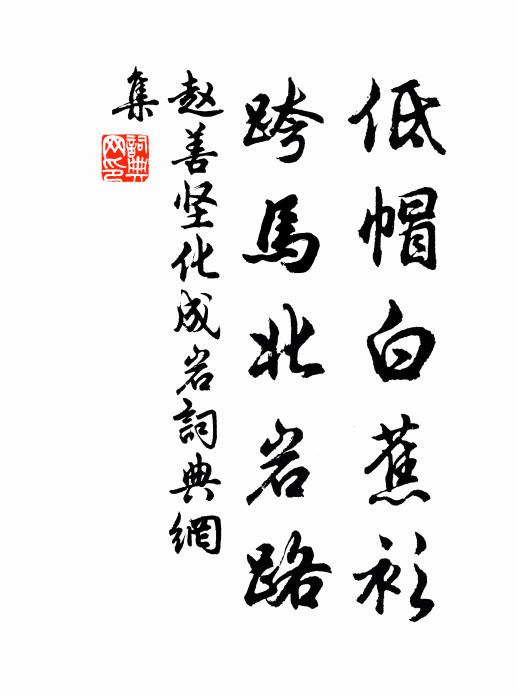 低帽白蕉衫
跨馬北岩路
赵善坚化成岩詞典網
集
詞典网印